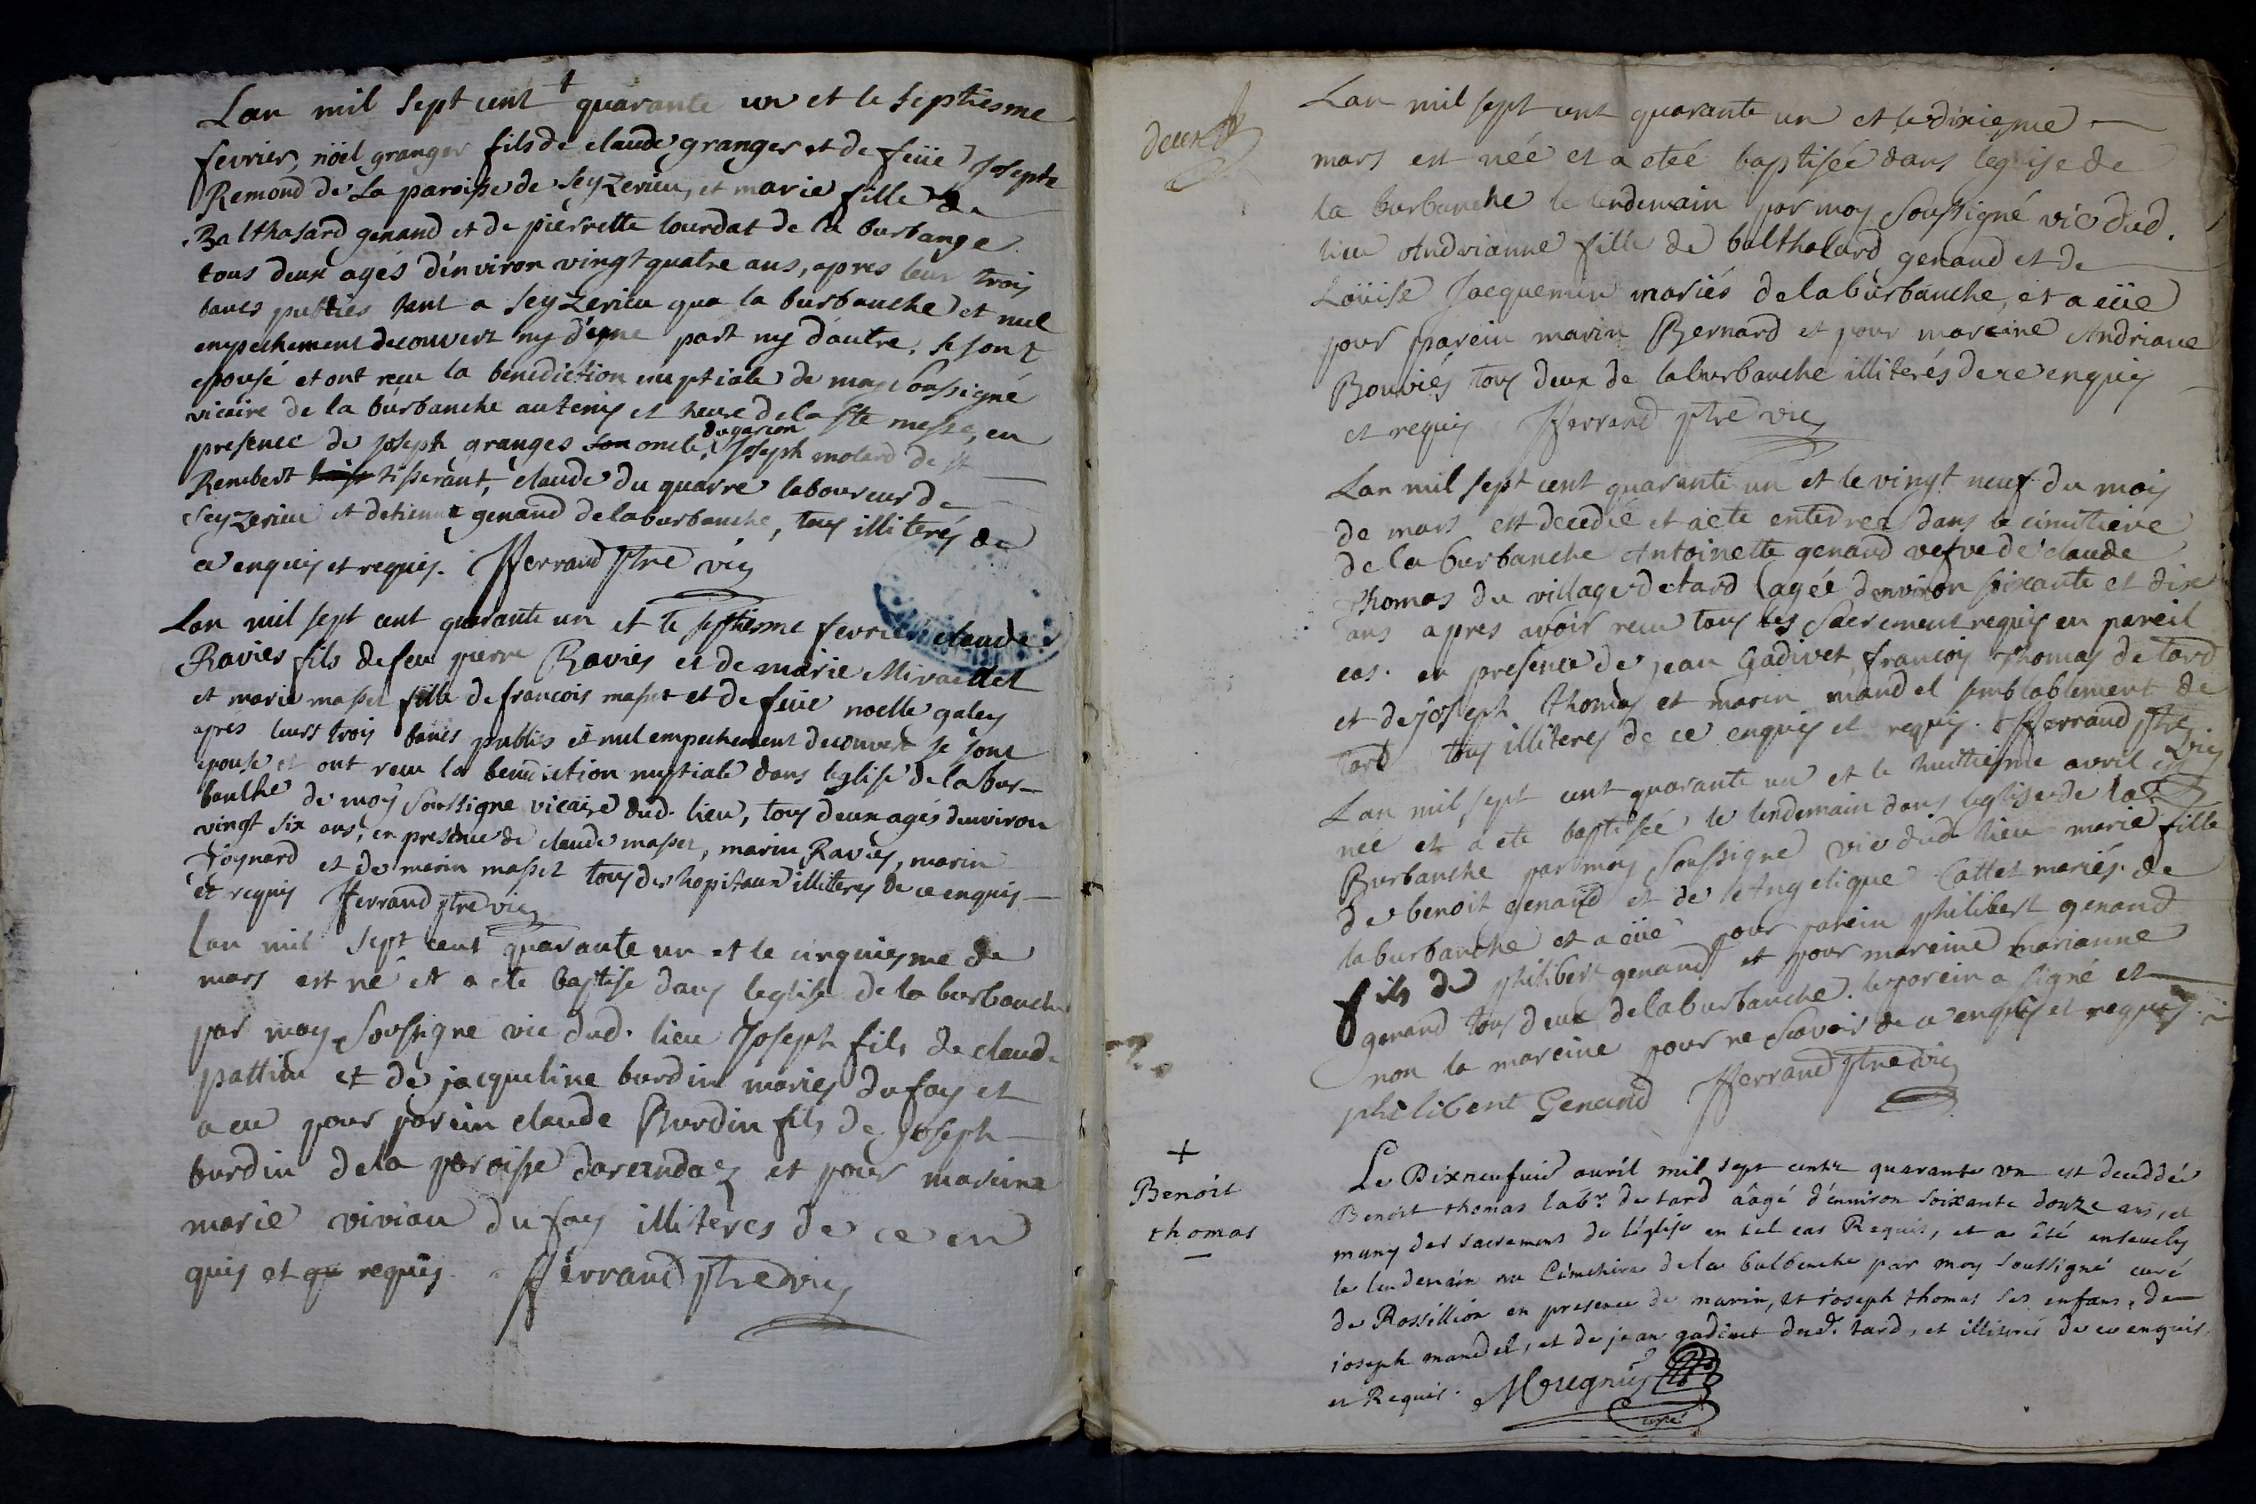 Lan mil sept cent quarante un et le septiesme
fevrier, nöel granger fils de claude granger et de feüe Josepte
Remond de La paroisse de seyzerieu, et marie fille de
Balthasard genand et de pierrette lourdat de la burbange
tous deux agés d'environ vingt quatre ans, apres leur trois
bancs publiés tant a seyzerieu qua la burbanche et nul
empechement decouvert ny d'une part ny d'autre. se sont
epousé et ont recu la benediction nuptiale de moy soussigné
vicaire de la burbanche au tems et heure de la ste messe, en
presence de joseph granges son oncle, du garcon Joseph molard de st
Rembert tisserant, claude du quarre laboureur de
seyzerieu et detienne genand de la burbanche, tous illiterés de
ce enquis et requis. fferrand ptre vic
Lan mil sept cent quarante un et le septiesme fevrier claude
Ravier fils de feu pierre Ravier et de marie Miraillet
et marie masset fille de francois masset et de feüe noelle galey
apres leurs trois bancs publiés et nul empechement decouvert se sont
epousé et ont recu la benediction nuptiale dans leglise de la bur-
banche de moy soussigne vicaire dud. lieu, tous deux agés denviron
vingt six ans, en presence de claude masset, marin Ravier, marin
Foynard et de marin masset tous des hopitaux illiteres de ce enquis
et requis fferrand ptre vic
Lan mil sept cent quarante un et le cinquiesme de
mars est né et a ete baptise dans leglise de la burbanche
par moy soussigne vic dud. lieu Joseph fils de claude
pattin et de jacqueline burdin maries du fay et
a eu pour parein claude Burdin fils de Joseph
burdin de la paroisse darandaz et pour mareine
marie vivian du fay illiteres de ce en
quis et qu requis. fferrand ptre vic
deux
Lan mil sept cent quarante un et le dixiesme
mars est néé et a eteé baptisée dans leglise de
la burbanche le lendemain par moy soussigné vic dud.
lieu Andrianne fille de balthasard genand et de
Loüise Jacquemin mariés de la burbanche, et a eüe
pour parein marin Bernard et pour mareine Andriane
Bouviés tous deux de la burbanche illiterés de ce enquis
et requis fferrand ptre vic
Lan mil sept cent quarante un et le vingt neuf du mois
de mars est decedée et a ete enterreé dans le cimitieire
de la burbanche Antoinette genand vefve de claude
Thomas du village de tard agéé denviron soixante et dix
ans apres avoir recu tous les Sacrement requis en pareil
cas. en presence de jean Gadivet francois Thomas de tard
et de joseph thomas et marin mandel semblablement de
tard tous illiteres de ce enquis et requis. fferrand ptre vic
Lan mil sept cent quarante un et le huittiesme avril est
néé et a ete baptisée le lendemain dans leglise de la
Burbanche par moy soussigne vic dud lieu marie fille
de benoit genand et de Angelique Cattet mariés de
la burbanche et a eüe pour parein philibert genand
fils de philibert genand et pour mareine marianne
genand tous deux de la burbanche. le parein a signé et
non la mareine pour ne scavoir de ce enquis et requis.
philibert Genand fferrand ptre vic
+
Benoit
thomas
Le Dixneufuie auril mil sept cents quarante vn est deceddé
Benoit thomas labr. de tard aâgé d'enuiron soixante douze ans, et
muny des sacremens de l'église en tel cas Requis, et a été enseuely
le lendemain au Cimetiere de la bulbenche par moy soussigné curé
de Rossillion en presence de marin, et ioseph thomas ses enfans, de
ioseph mandel, et de jean gadiuet dud. tard, et illiterés de ce enquis,
et Requis.
curé